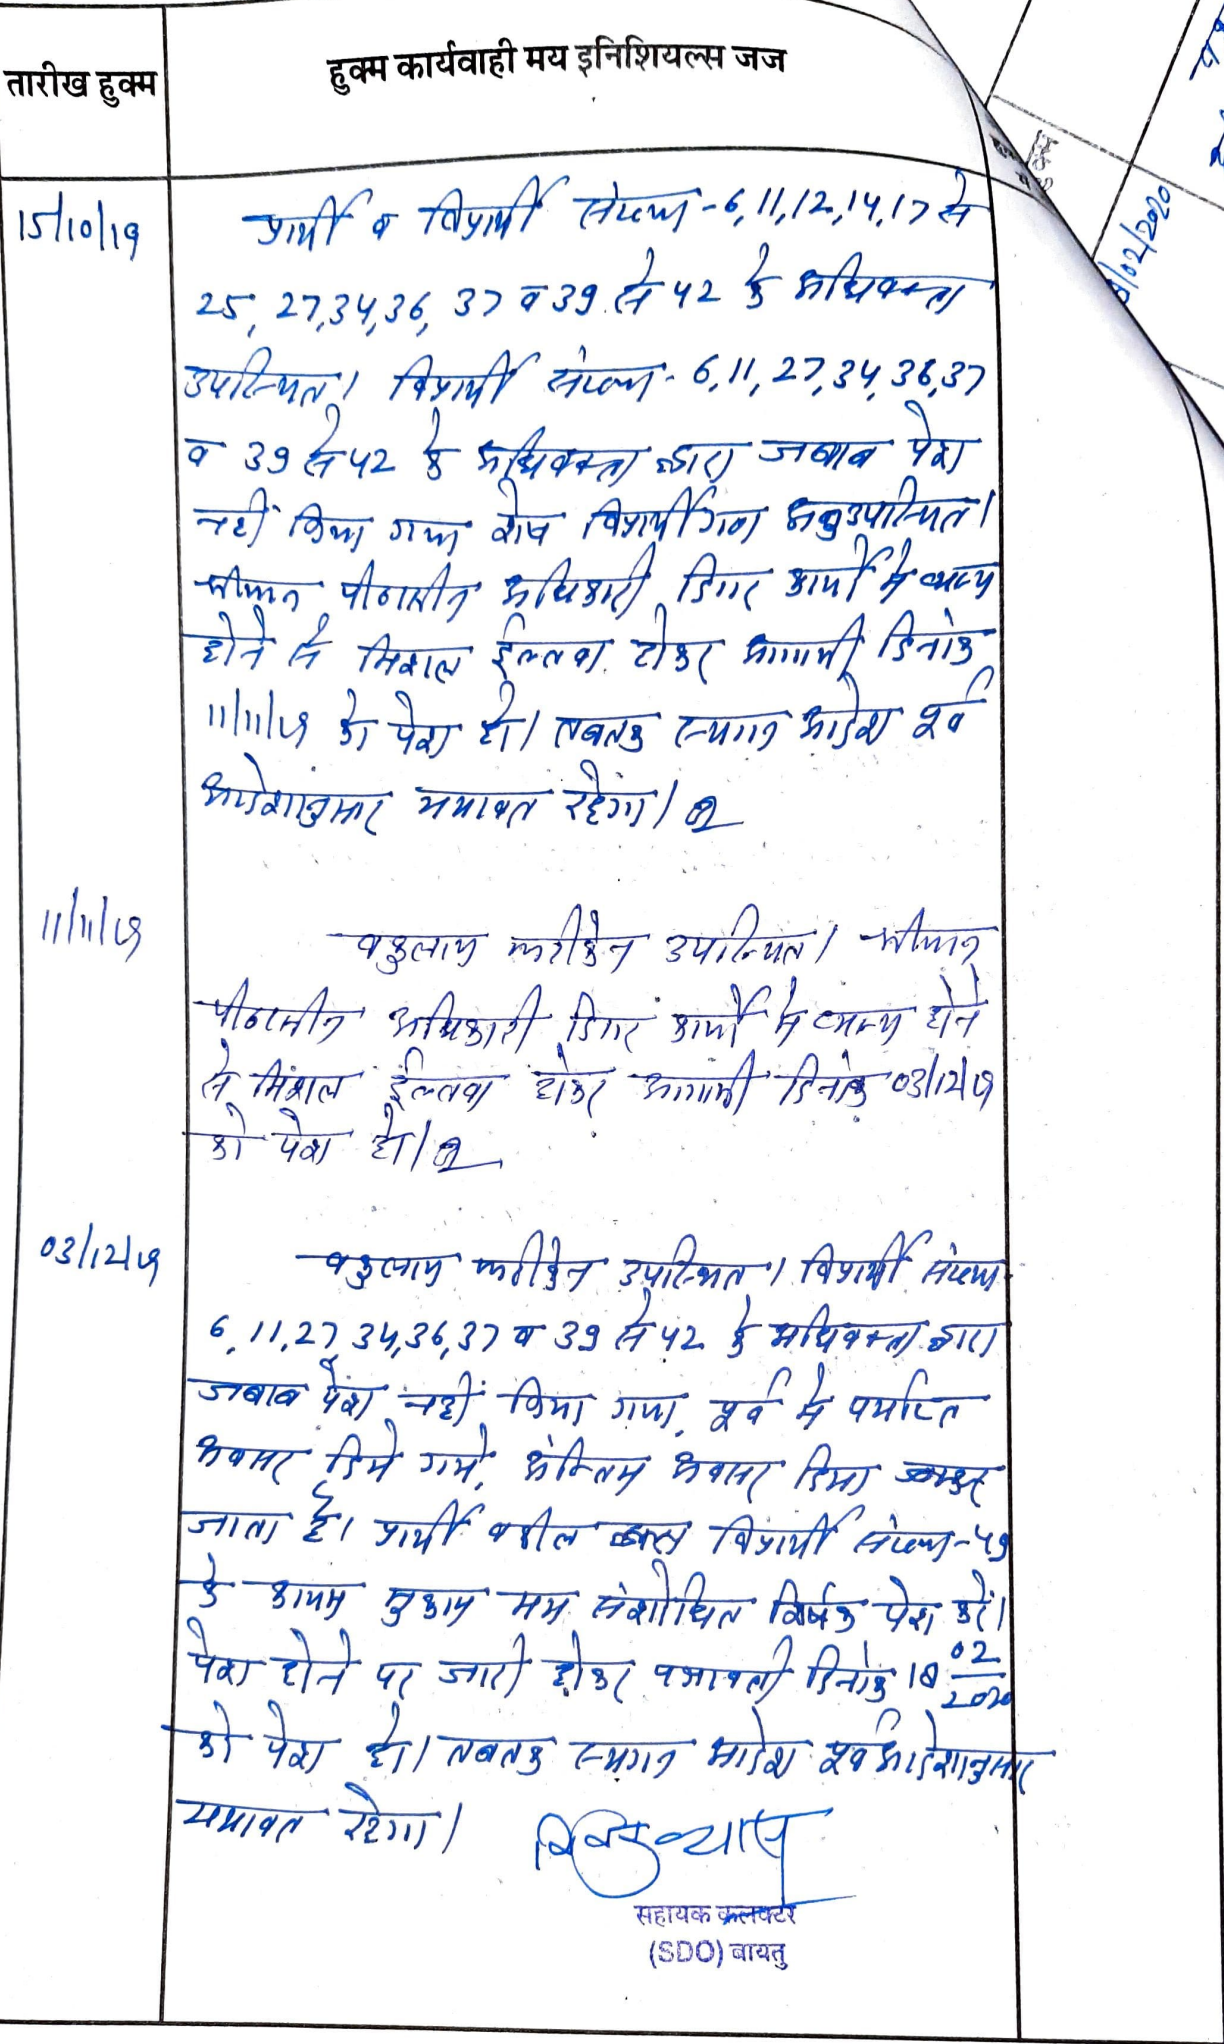 तारीख हुक्म
हुक्म कार्यवाही मय इनिशियल्स जज
15/10/19
प्रार्थी व विप्रार्थी संख्या-6,11,12,14,17 से
25, 27,34,36, 37 व 39 से 42 के अधिवक्ता
उपस्थित। विप्रार्थी संख्या- 6,11,27,34,36,37
व 39 से 42 के अधिवक्ता द्वारा जबाब पेश
नहीं किया गया शेष विप्रार्थीगण अनुउपस्थित।
श्रीमान पीठासीन अधिकारी दिगर कार्यो मे व्यस्थ
होने से मिशल ईल्तवा होकर आगामी दिनांक
11/11/19 को पेश हो। तबतक स्थगन आदेश पूर्व
आदेशानुसार यथावत रहेगा।
11/11/19
वकुलाय फरीकेन उपस्थित। श्रीमान
पीठासीन अधिकारी दिगर कार्यो मे व्यस्थ होने
से मिशल ईल्तवा होकर आगामी दिनांक 03/12/19
को पेश हो।
03/12/19
वकुलाय फरीकेन उपस्थित। विप्रार्थी संख्या
6,11,27,34,36,37 व 39 से 42 के अधिवक्ता द्वारा
जबाब पेश नहीं किया गया, पूर्व मे पर्याप्त
अवसर दिये गये, अन्तिम अवसर दिया
जाता है। प्रार्थी वकील विप्रार्थी संख्या-49
के कायम मुकाम मय संशोधित शिर्षक पेश करें।
पेश होने पर जारी होकर पत्रावली दिनांक 18 02/2020
को पेश हो। तबतक स्थगन आदेश पूर्व आदेशानुसार
यथावत रहेगा।
सहायक कलक्टर
(SDO) बायतु
/02/2020